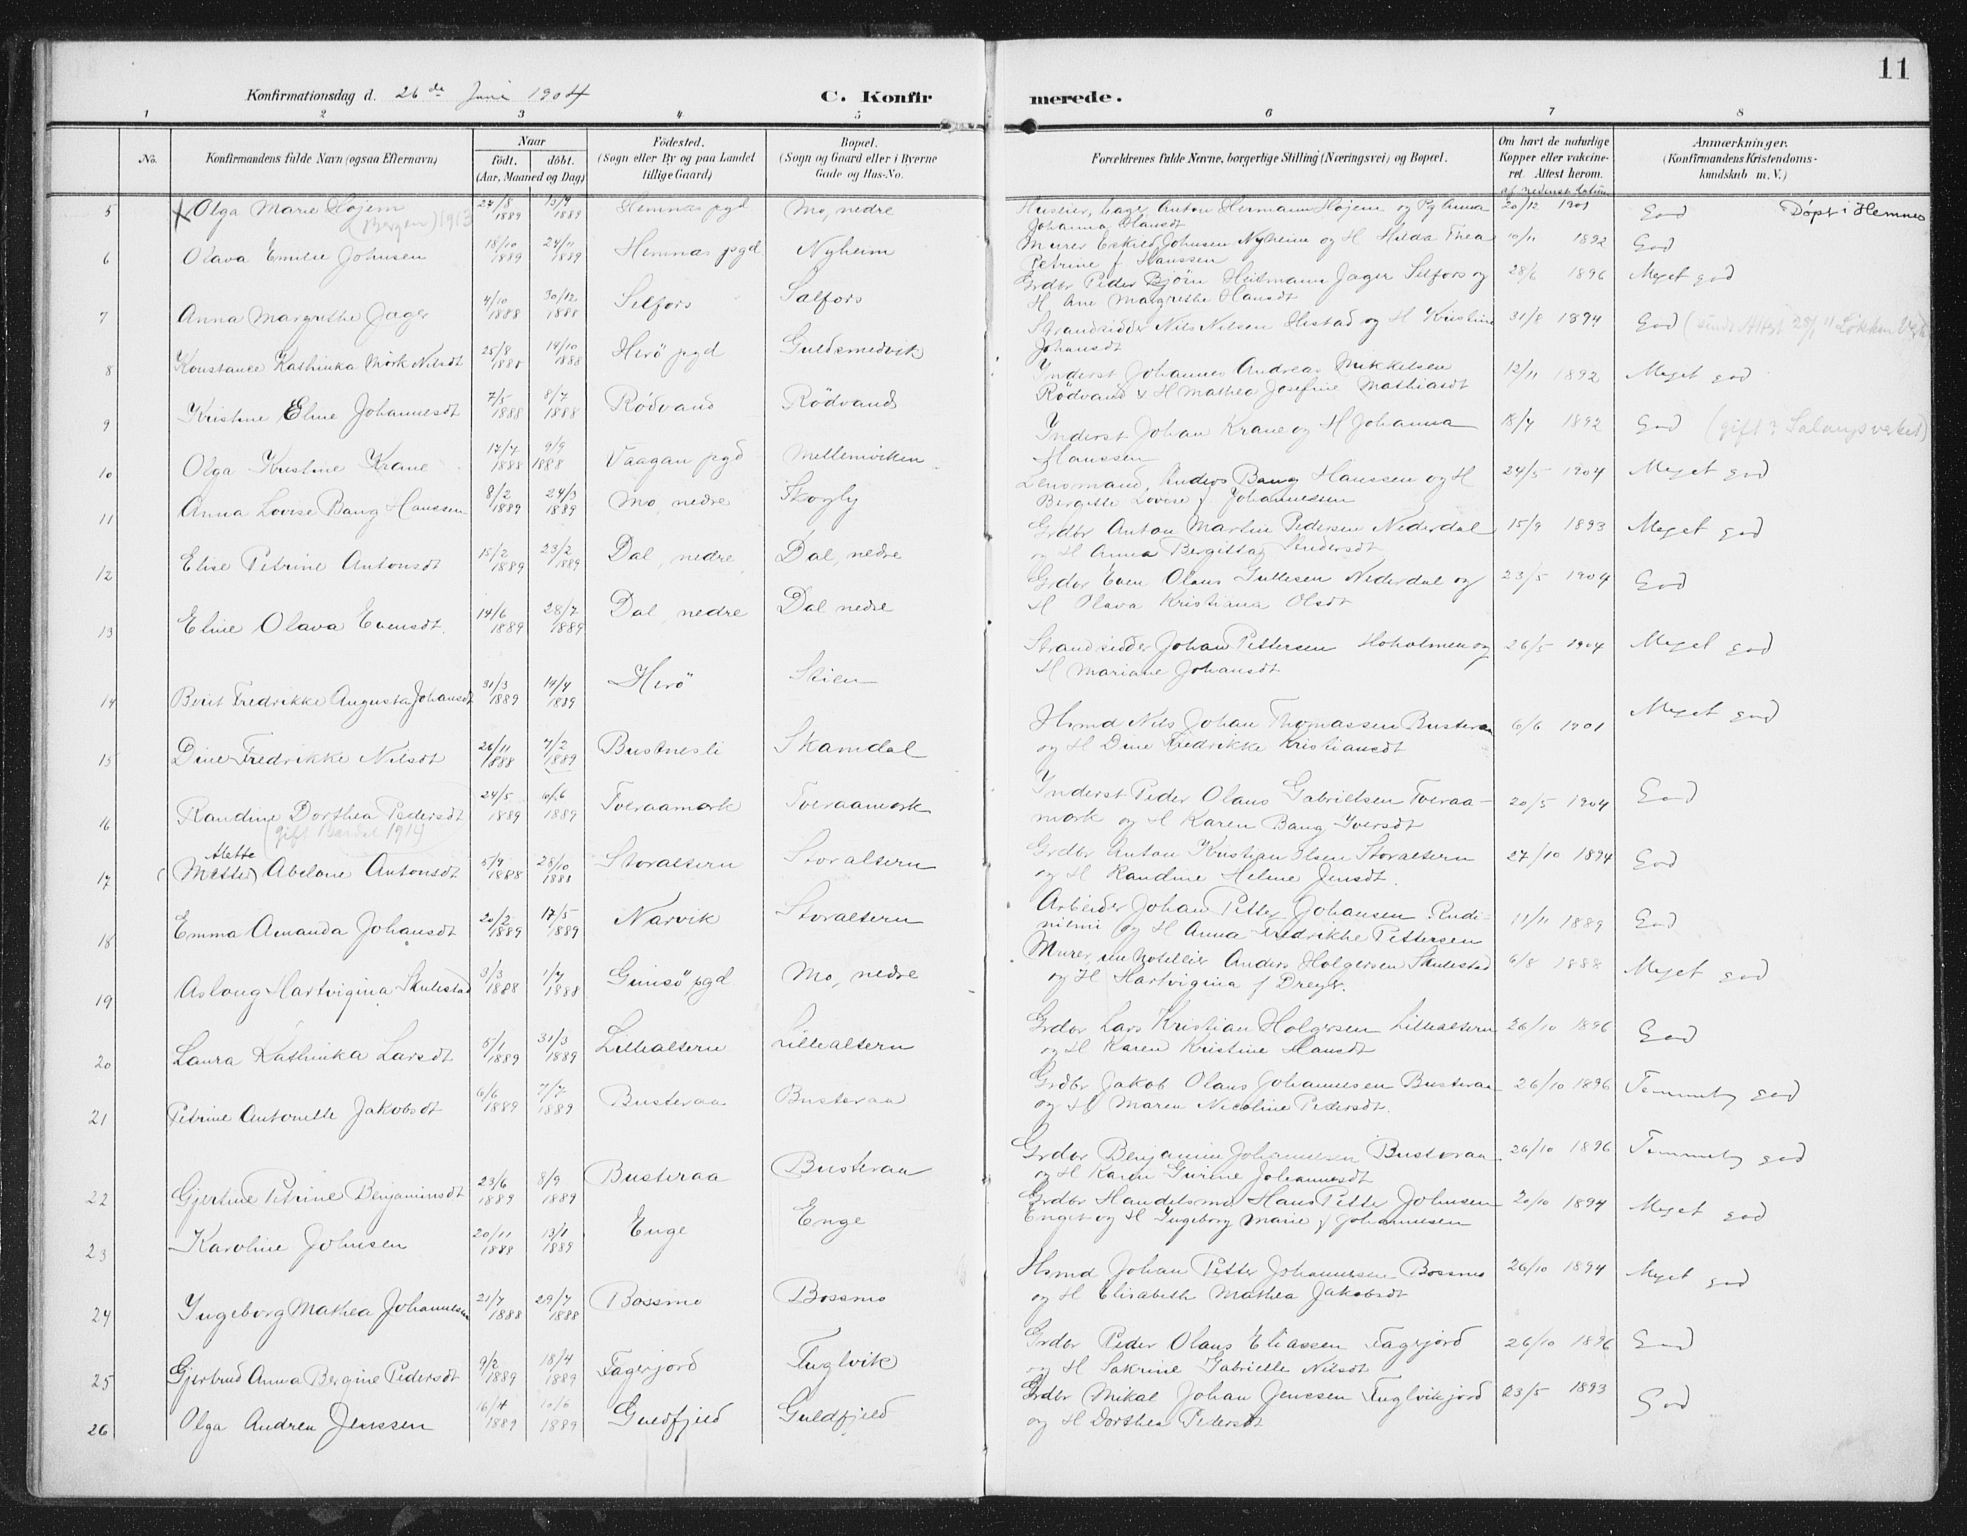 11
Konfirmationsdag d. 26de Juni 1904 C. Konfirmerede.
1 2 3 4 5 6 7 8
No.
Konfirmandens fulde Navn (ogsaa Efternavn)
Naar
födt. döbt.
(Aar, Maaned og Dag)
Födested.
(Sogn eller By og paa Landet
tillige Gaard)
Bopæl.
(Sogn og Gaard eller i Byerne
Gade og Hus-No.
Forældrenes fulde Navne, borgerlige Stilling (Næringsvei) og Bopæl.
Om havt de naturlige
Kopper eller vakcine-
ret. Attest herom.
Anmærkninger.
(Konfirmandens Kristendoms-
kundskab m. V.)
5 Olga Marie Højem 24/8 1889 13/9 1889 Hemnæs pgd Mo, nedre Anton Hermann Højem og Anna 20/12 1901 God Døpt i Hemnes
(Bergen) 1913 Johanna Hansdt
6 Olava Emilie Johnsen 18/10 1889 24/11 1889 Hemnæs pgd Nyheim Murer Eskild Johnsen Nyheim og H Hilda Thea 10/11 1892 God
Petrine f Hanssen
7 Anna Margrethe Jager 4/10 1888 30/12 1888 Selfors Salfors Grdbr Peder Bjørn Heitmann Jager Selfors og 28/6 1896 Meget god
H Ane Margrethe Hansdt
8 Konstance Kathinka Mörk Nilsdt 25/8 1888 14/10 1888 Herö pgd Guldsmedvik Strandsidder Nils Nilsen Hestad og H Kristine 31/8 1894 God
Johansdt
9 Kristine Eline Johannesdt 7/5 1888 8/7 1888 Rödvand Rödvand Inderst Johannes Andreas Mikkelsen 12/11 1892 Meget god
Rödvand & H Mathea Josefine Mathiasdt
10 Olga Kristine Krane 17/7 1888 9/9 1888 Vaagan pgd Mellemviken Inderst Johan Krane og H Johanna 18/7 1892 God (gift 3 Salangsverket)
Hanssen
11 Anna Lovise Bang Hanssen 8/2 1889 24/3 1889 Mo, nedre Skogly Lensmand Anders Bang Hanssen og H 24/5 1904 Meget god
Bergitte Lovise f. Johannessen
12 Elise Petrine Antonsdt 15/2 1889 23/2 1889 Dal, nedre Dal, nedre Grdbr Anton Martin Pedersen Nederdal 15/9 1893 Meget god
og H Anna Bergitta Andersdt
13 Eline Olava Evensdt. 14/6 1889 28/7 1889 Dal, nedre Dal nedre Grdbr Even Olaus Gullesen Nederdal og 23/5 1904 God
H Olava Kristiana Olsdt
14 Berit Fredrikke Augusta Johansdt 31/3 1889 14/4 1889 Herö Skien Strandsidder Johan Pettersen Hoholmen og 26/5 1904 Meget god
H Mariane Johansdt
15 Dine Fredrikke Nilsdt 26/11 1888 7/2 1889 Bustnesli Skamdal Hsmd Nils Johan Thomassen Busteraa 6/6 1901 Meget god
og H Dine Fredrikke Kristiansdt
16 Randine Dorthea Pedersdt 24/5 1889 10/6 1889 Tveraamork Tveraamork Inderst Peder Olaus Gabrielsen Tveraa- 20/5 1904 God
(gift Bardal 1914) mork og H Karen Bang Iversdt
Alette
17 (Mette) Abelone Antonsdt 5/9 1888 28/10 1888 Storaltern Storaltern Grdbr Anton Kristian Olsen Storaltern 27/10 1894 God
og H Randine Heline Jensdt.
18 Emma Amanda Johansdt 20/2 1889 17/5 1889 Narvik Storaltern Arbeider Johan Petter Johansen 11/11 1889 God
og H Anna Fredrikke Pettersen
19 Aslaug Hartvigina Skulestad 3/3 1888 1/7 1888 Gimsö pgd Mo, nedre Murer, nu hotellier Anders Holgersen Skulestad 6/8 1888 Meget god
og H Hartvigina f Dreyer.
20 Laura Kathinka Larsdt 5/1 1889 31/3 1889 Lillealtern Lillealtern Grdbr Lars Kristian Holgersen Lillealtern 26/10 1896 God
og H Karen Kristine Hansdt
21 Petrine Antonette Jakobsdt 6/6 1889 7/7 1889 Busteraa Busteraa Grdbr Jakob Olaus Johannesen Busteraa 26/10 1896 Temmelig god
og H Maren Nicoline Pedersdt.
22 Gjertine Petrine Benjaminsdt 23/6 1889 8/9 1889 Busteraa Busteraa Grdbr Benjamin Johannesen Busteraa 26/10 1896 Temmelig god
og H Karen Gurine Johannesdt
23 Karoline Johnsen 20/11 1888 13/1 1889 Enge Enge Grdbr Handelsmd Hans Petter Johnsen 20/10 1894 Meget god
Enget og H Ingeborg Marie f Johannesen
24 Ingeborg Mathea Johannesen 21/7 1888 29/7 1888 Bossmo Bossmo Hsmd Johan Petter Johannesen Bossmo 26/10 1894 Meget god
og H Elisabeth Mathea Jakobsdt
25 Gjertrud Anna Bergine Pedersdt 9/2 1889 18/4 1889 Fagerjord Fuglvik Grdbr Peder Olaus Eliassen Fagrjord 26/10 1896 God
og H Sakrine Gabrielle Nilsdt
26 Olga Andrea Jenssen 16/4 1889 10/6 1889 Guldfjeld Guldfjeld Grdbr Mikal Johan Jenssen Fuglvikjord 23/5 1893 God
og H Dorthea Pedersdt